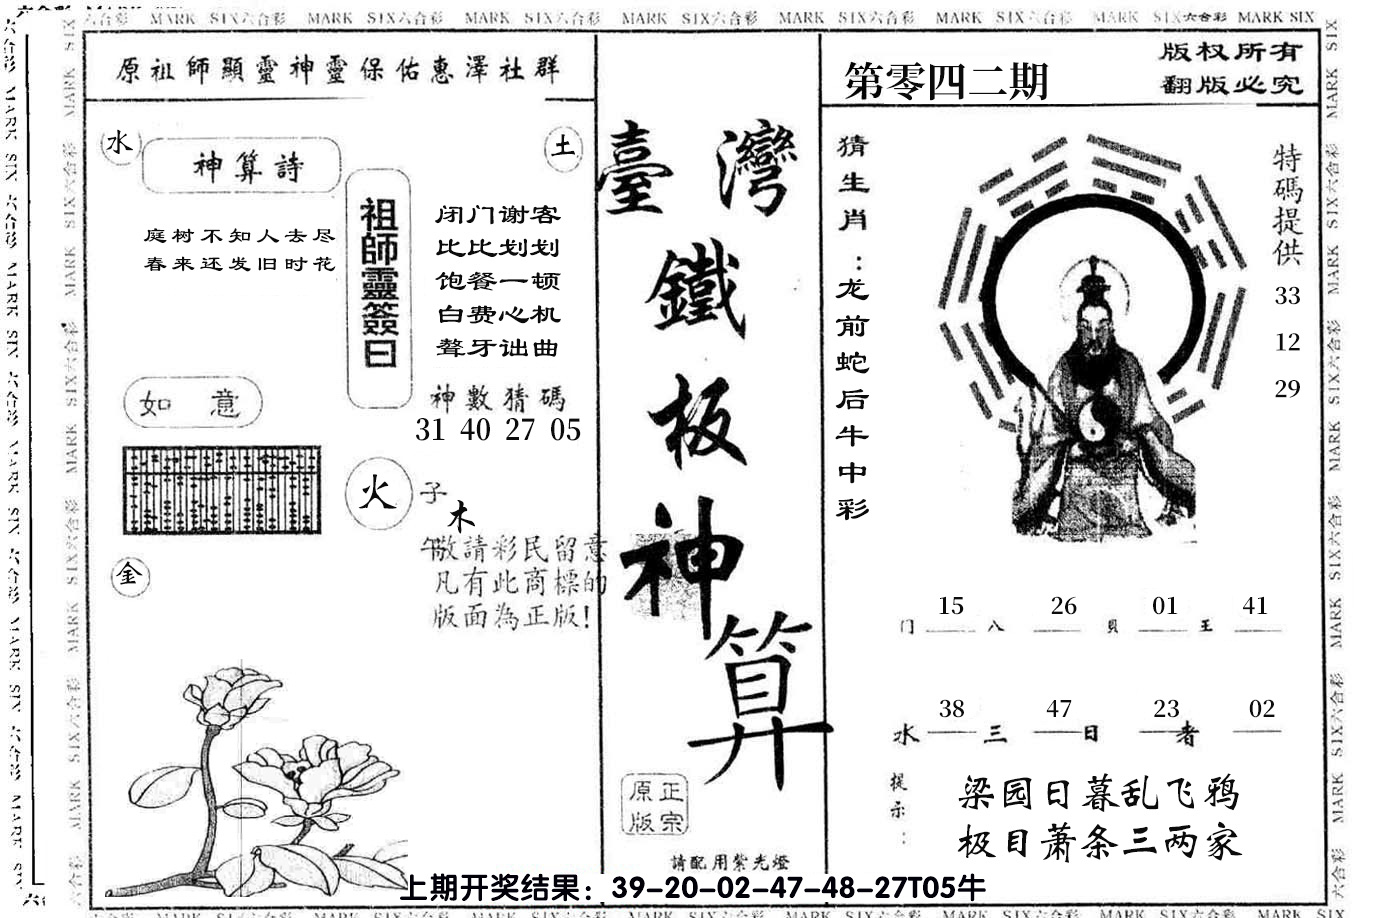 MARK SIX六合彩 MARK SIX六合彩 MARK SIX六合彩 MARK SIX六合彩 MARK SIX六合彩 MARK SIX六合彩 MARK SIX六合彩 MARK SIX
原祖師顯靈神靈保佑惠澤社群
水
神算詩
土
庭树不知人去尽
春来还发旧时花
祖師靈簽曰
闭门谢客
比比划划
饱餐一顿
白费心机
聱牙诎曲
神數猜碼
31 40 27 05
如意
火
子
木
午
敬請彩民留意
凡有此商標的
版面為正版!
金
臺灣
鐵
板
神
算
正宗
原版
請配用紫光燈
第零四二期
版权所有
翻版必究
猜生肖:龙前蛇后牛中彩
特碼提供
33
12
29
15 26 01 41
门 八 貝 王
38 47 23 02
水 三 日 者
提示:
梁园日暮乱飞鸦
极目萧条三两家
上期开奖结果：39-20-02-47-48-27T05牛